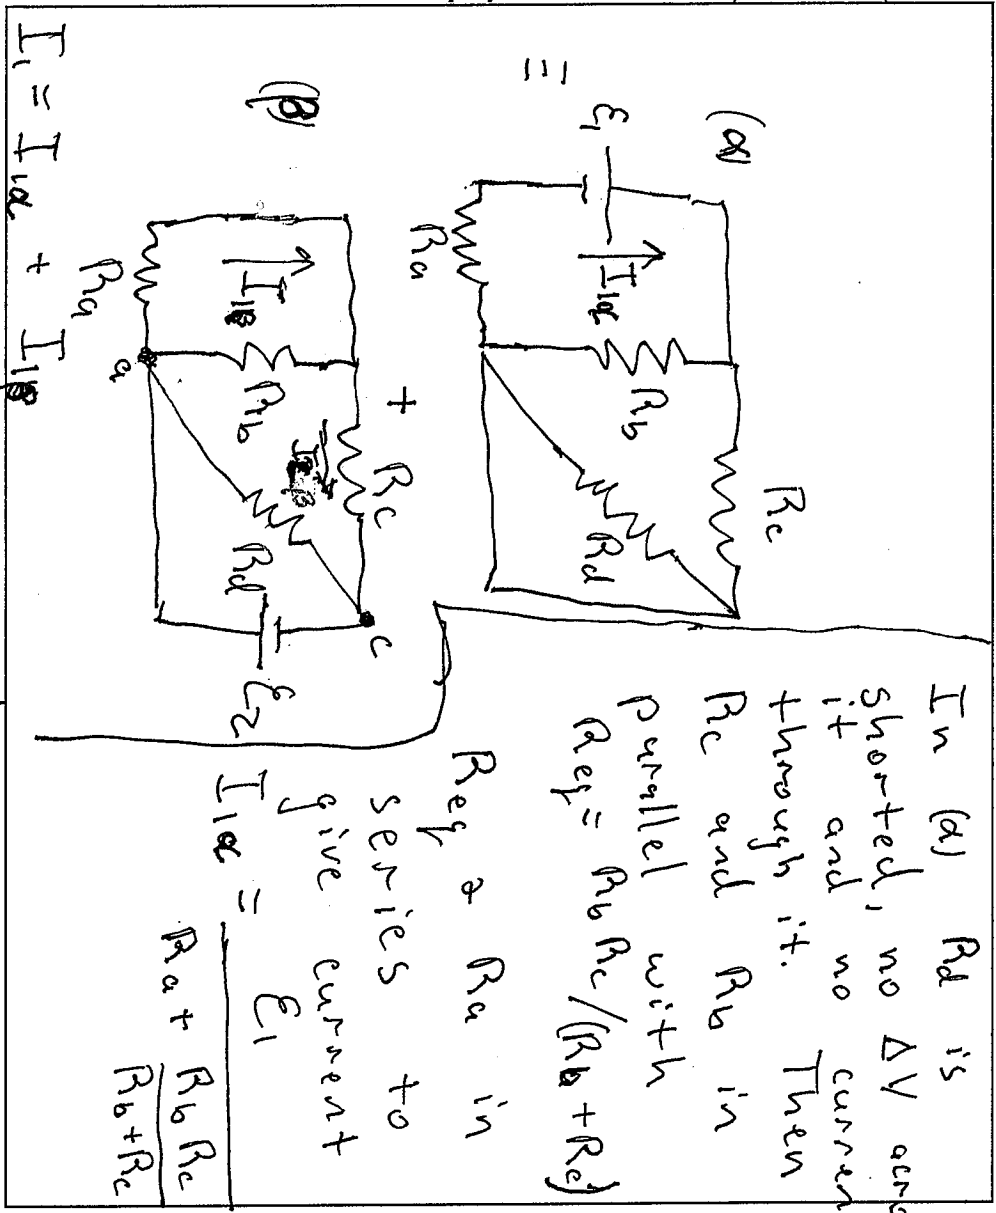 =
(α)
ε₁
I₁α
Ra
Rb
Rc
Rd
+
(β)
I₁β
Ra
Rb
Rc
Rd
a
c
ε₂
I₁ = I₁α + I₁β
In (α) Rd is
shorted, no ΔV
it and no
through it. Then
Rc and Rb in
parallel with
Req = Rb Rc/(Rb + Rc)
Req & Ra in
series to
give current
I₁α = ε₁
Ra + Rb Rc
Rb + Rc